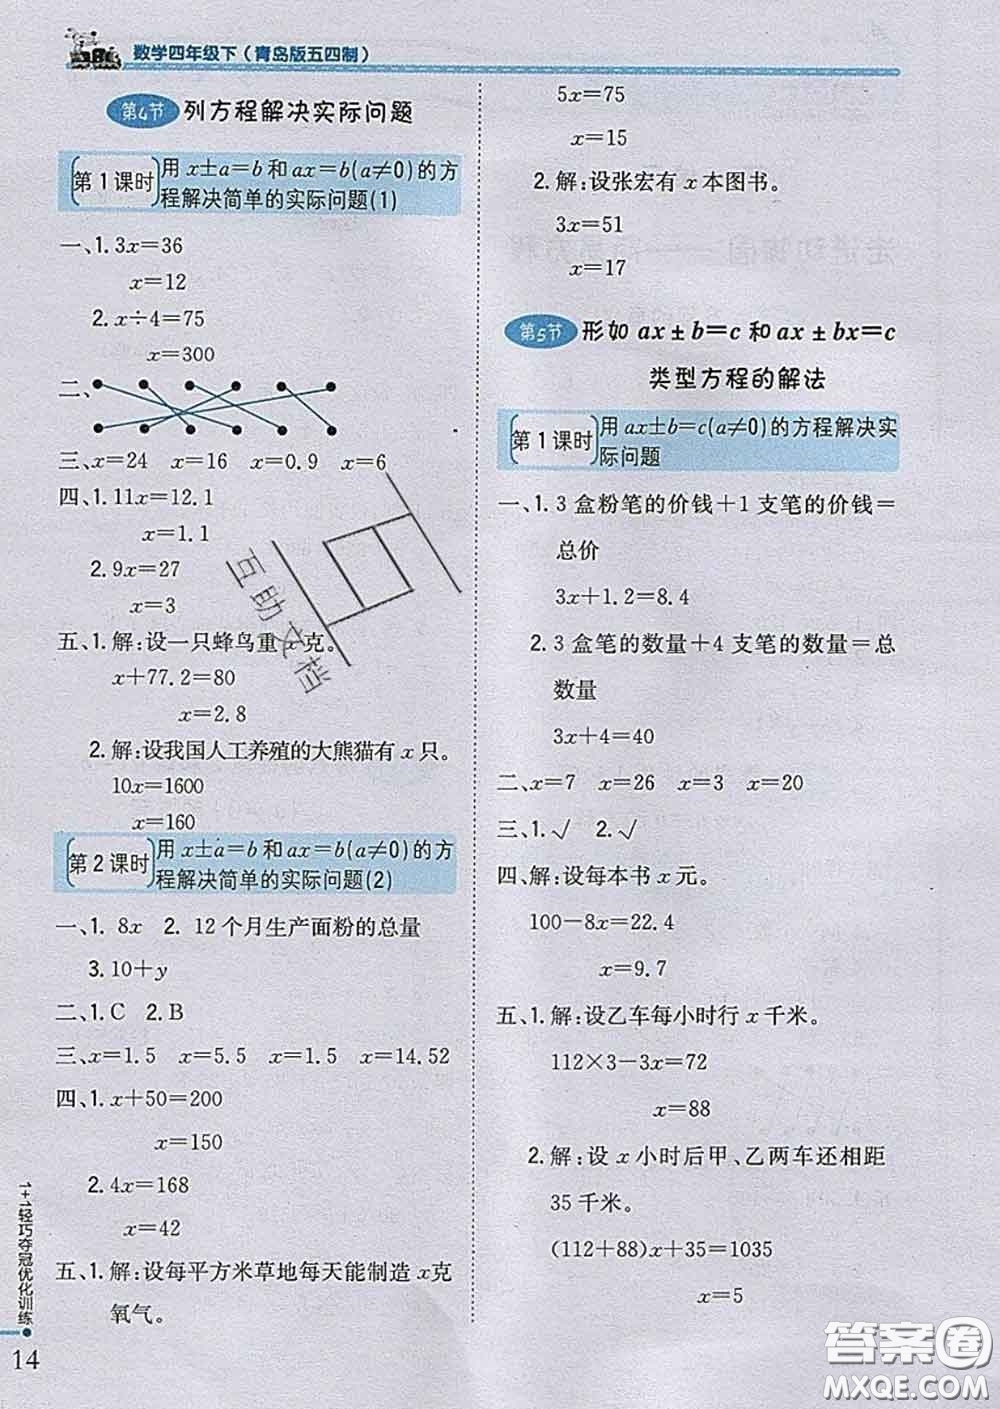 数学四年级下（青岛版五四制）
第4节 列方程解决实际问题
第1课时 用 x±a=b 和 ax=b(a≠0)的方
程解决简单的实际问题(1)
一、1. 3x=36
x=12
2. x÷4=75
x=300
二、
三、x=24 x=16 x=0.9 x=6
四、1. 11x=12.1
x=1.1
2. 9x=27
x=3
五、1. 解:设一只蜂鸟重 x 克。
x+77.2=80
x=2.8
2. 解:设我国人工养殖的大熊猫有 x 只。
10x=1600
x=160
第2课时 用 x±a=b 和 ax=b(a≠0)的方
程解决简单的实际问题(2)
一、1. 8x 2. 12个月生产面粉的总量
3. 10+y
二、1. C 2. B
三、x=1.5 x=5.5 x=1.5 x=14.52
四、1. x+50=200
x=150
2. 4x=168
x=42
五、1. 解:设每平方米草地每天能制造 x克
氧气。
5x=75
x=15
2. 解:设张宏有 x 本图书。
3x=51
x=17
第5节 形如 ax±b=c 和 ax±bx=c
类型方程的解法
第1课时 用 ax±b=c(a≠0)的方程解决实
际问题
一、1. 3 盒粉笔的价钱+1 支笔的价钱=
总价
3x+1.2=8.4
2. 3 盒笔的数量+4 支笔的数量=总
数量
3x+4=40
二、x=7 x=26 x=3 x=20
三、1. √ 2. √
四、解:设每本书 x 元。
100-8x=22.4
x=9.7
五、1. 解:设乙车每小时行 x 千米。
112×3-3x=72
x=88
2. 解:设 x 小时后甲、乙两车还相距
35 千米。
(112+88)x+35=1035
x=5
1+1轻巧夺冠优化训练
14
互助文档
答案圈
MXQE.COM